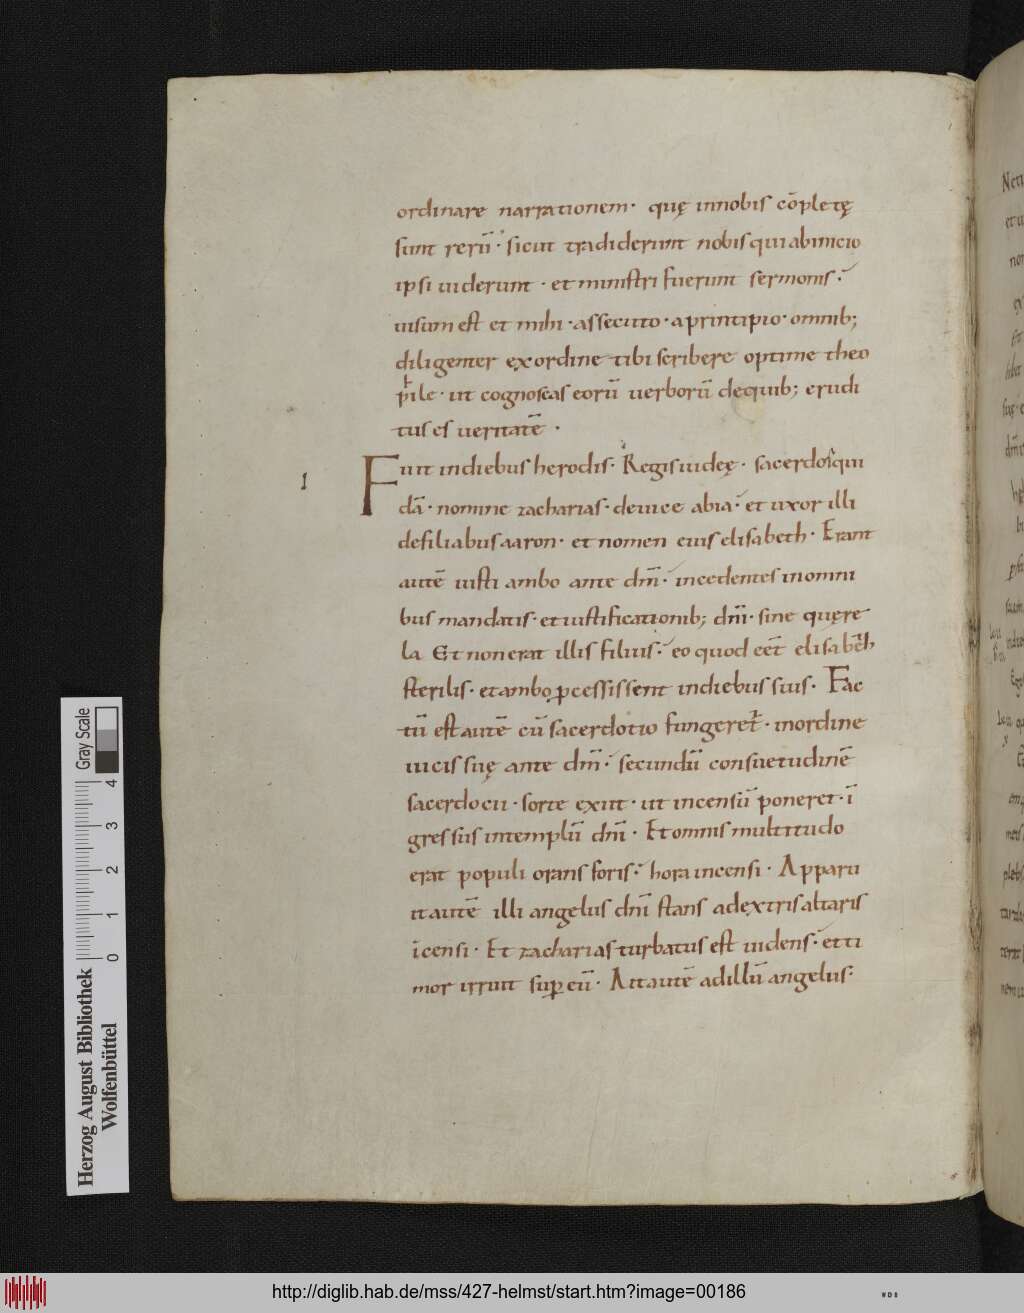 ordinare narrationem· quę innobis cōpletę
sunt rerū· sicut tradiderunt nobis qui abinicio
ipsi uiderunt · et ministri fuerunt sermonis·
uisum est et mihi · assecuto · aprintipio · omnib;
diligenter exordine tibi scribere optime theo
phile · ut cognoscas eorū uerborū dequib; erudi
tus es ueritatē ·
1
Fuit indiebus herodis· Regis iudeę · sacerdos qui
dā · nomine zacharias · deuice abia· et uxor illi
defiliabus aaron · et nomen eius elisabeth · Erant
autē iusti ambo ante dm̄· incedentes inomni
bus mandatis · et iustificationib; dn̄i · sine quęre
la Et non erat illis filius· eo quod eēt elisabēth
sterilis · et ambo ꝓcessissent indiebus suis · Fac
tū est autē cū sacerdotio fungeret̄ · inordine
uicis suę ante dm̄· secundū consuetudinē
sacerdocii · sorte exiit · ut incensū poneret · ī
gressus intemplū dn̄i · Et omnis multitudo
erat populi orans foris· hora incensi · Apparu
it autē illi angelus dn̄i stans adextris altaris
īcensi · Et zacharias turbatus est uidens· et ti
mor irruit suꝑ eū · Ait autē ad illū angelus·
Herzog August Bibliothek
Wolfenbüttel
Gray Scale
0 1 2 3 4
http://diglib.hab.de/mss/427-helmst/start.htm?image=00186